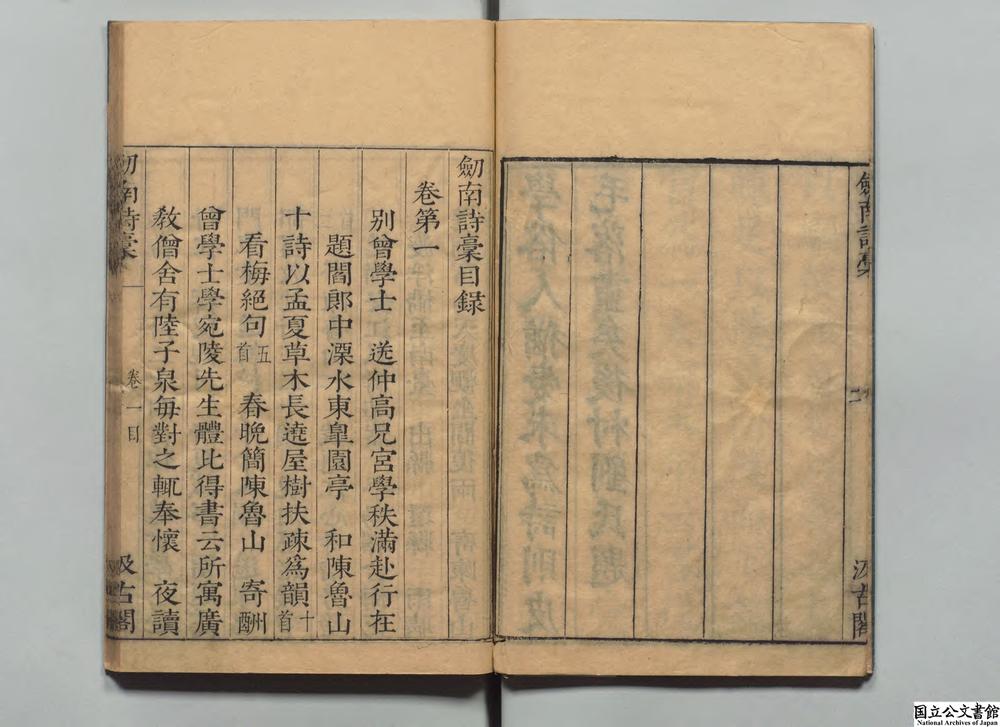 劒南詩稾
二
汲古閣
劒南詩稾目録
卷第一
別曾學士　送仲高兄宮學秩滿赴行在
題閻郎中溧水東皐園亭　和陳魯山
十詩以孟夏草木長遶屋樹扶疎爲韻十首
看梅絕句五首　春晚簡陳魯山　寄酬
曾學士學宛陵先生體比得書云所寓廣
敎僧舍有陸子泉每對之輒奉懷　夜讀
劒南詩稾　卷一目　一
汲古閣
国立公文書館
National Archives of Japan